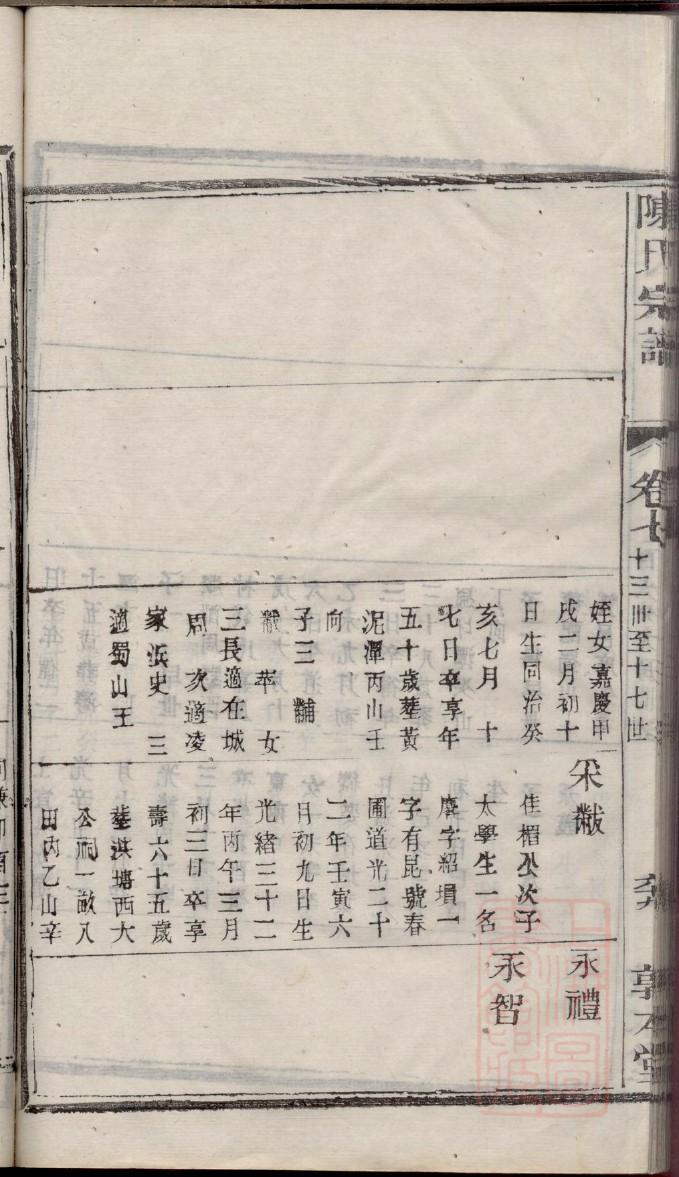 陳氏宗譜
卷七
十三世至十七世
敦本堂
姪女嘉慶甲
戌二月初十
日生同治癸
亥七月十
七日卒享年
五十歲塟黄
泥潭丙山壬
向
子三黼
黻苹女
三長適在城
周次適凌
家浜史三
適蜀山王
采黻
佳楣公次子
太學生一名
賡字紹塤一
字有昆號春
圃道光二十
二年壬寅六
日初九日生
光緒三十二
年丙午三月
初三日卒享
壽六十五歲
塟洪塘西大
公祠一畝八
田内乙山辛
永禮
永智